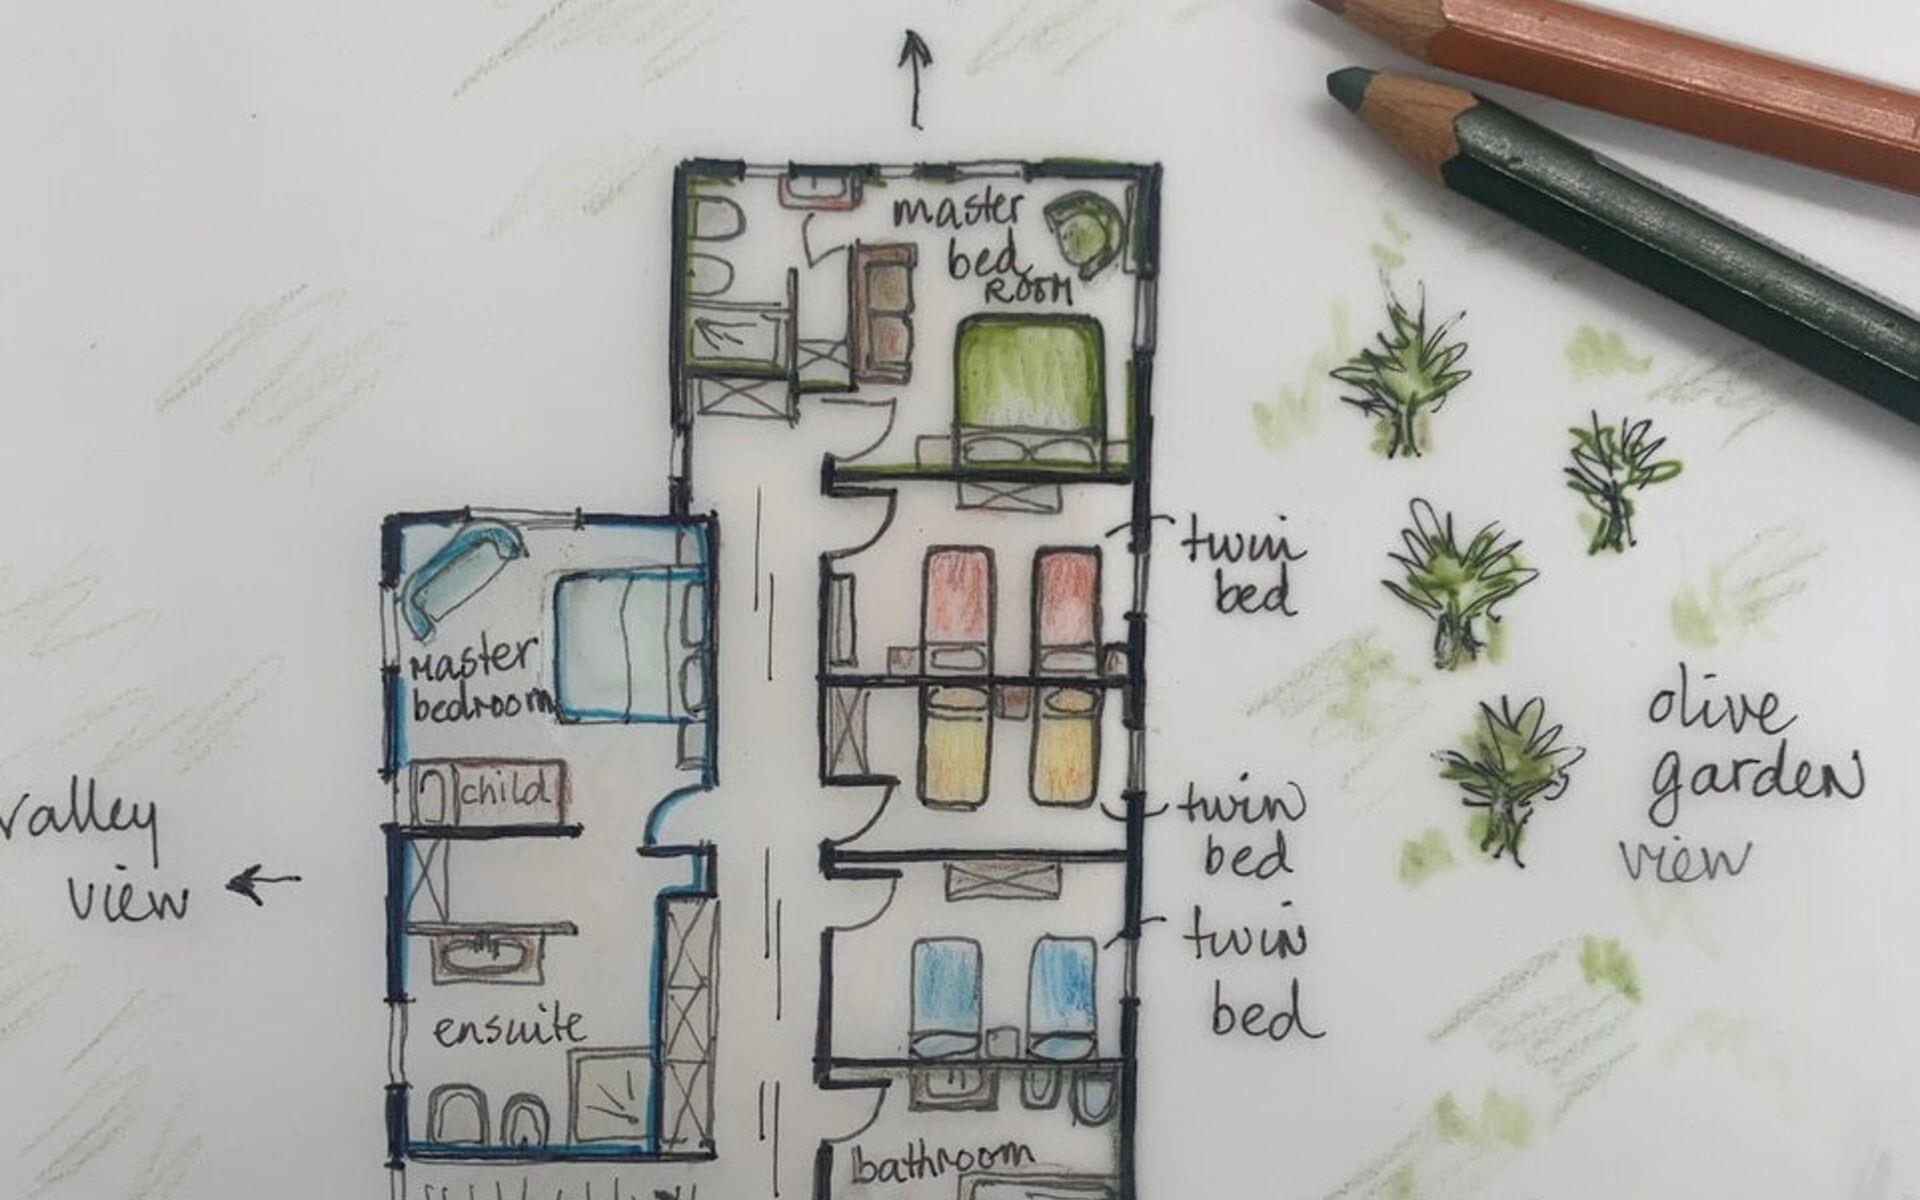 master
bed
ROOM
twin
bed
Master
bedroom
child
valley
view
olive
garden
view
twin
bed
twin
bed
ensuite
bathroom